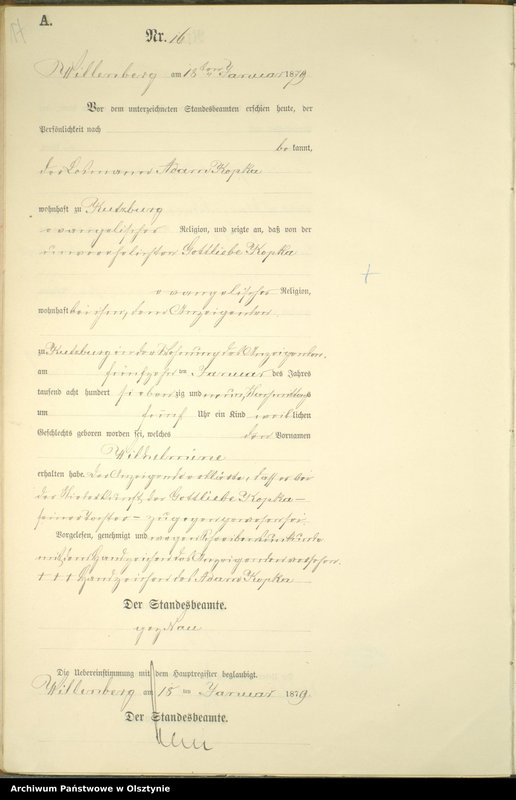 A.
Nr. 16
Willenberg am 18ten Januar 1879
Vor dem unterzeichneten Standesbeamten erschien heute, der
Persönlichkeit nach
be kannt,
der Losmann Adam Kopka
wohnhaft zu Kutzburg
evangelischer Religion, und zeigte an, daß von der
unverehelichten Gottliebe Kopka
evangelischer Religion,
wohnhaft bei ihm, dem Anzeigenden
zu Kutzburg in der Wohnung des Anzeigenden,
am fünfzehnten Januar des Jahres
tausend acht hundert siebenzig und neun, Vormittags
um fünf Uhr ein Kind weiblichen
Geschlechts geboren worden sei, welches den Vornamen
Wilhelmine
erhalten habe. Der Anzeigende erklärte, daß er bei
der Niederkunft der Gottliebe Kopka –
seiner Tochter – zugegen gewesen sei.
Vorgelesen, genehmigt und wegen Schreibensunkunde
mit dem Handzeichen des Anzeigenden versehen.
+ + + Handzeichen des Adam Kopka
Der Standesbeamte.
gez. Nau
Die Uebereinstimmung mit dem Hauptregister beglaubigt.
Willenberg am 18 ten Januar 1879.
Der Standesbeamte.
Nau
Archiwum Państwowe w Olsztynie